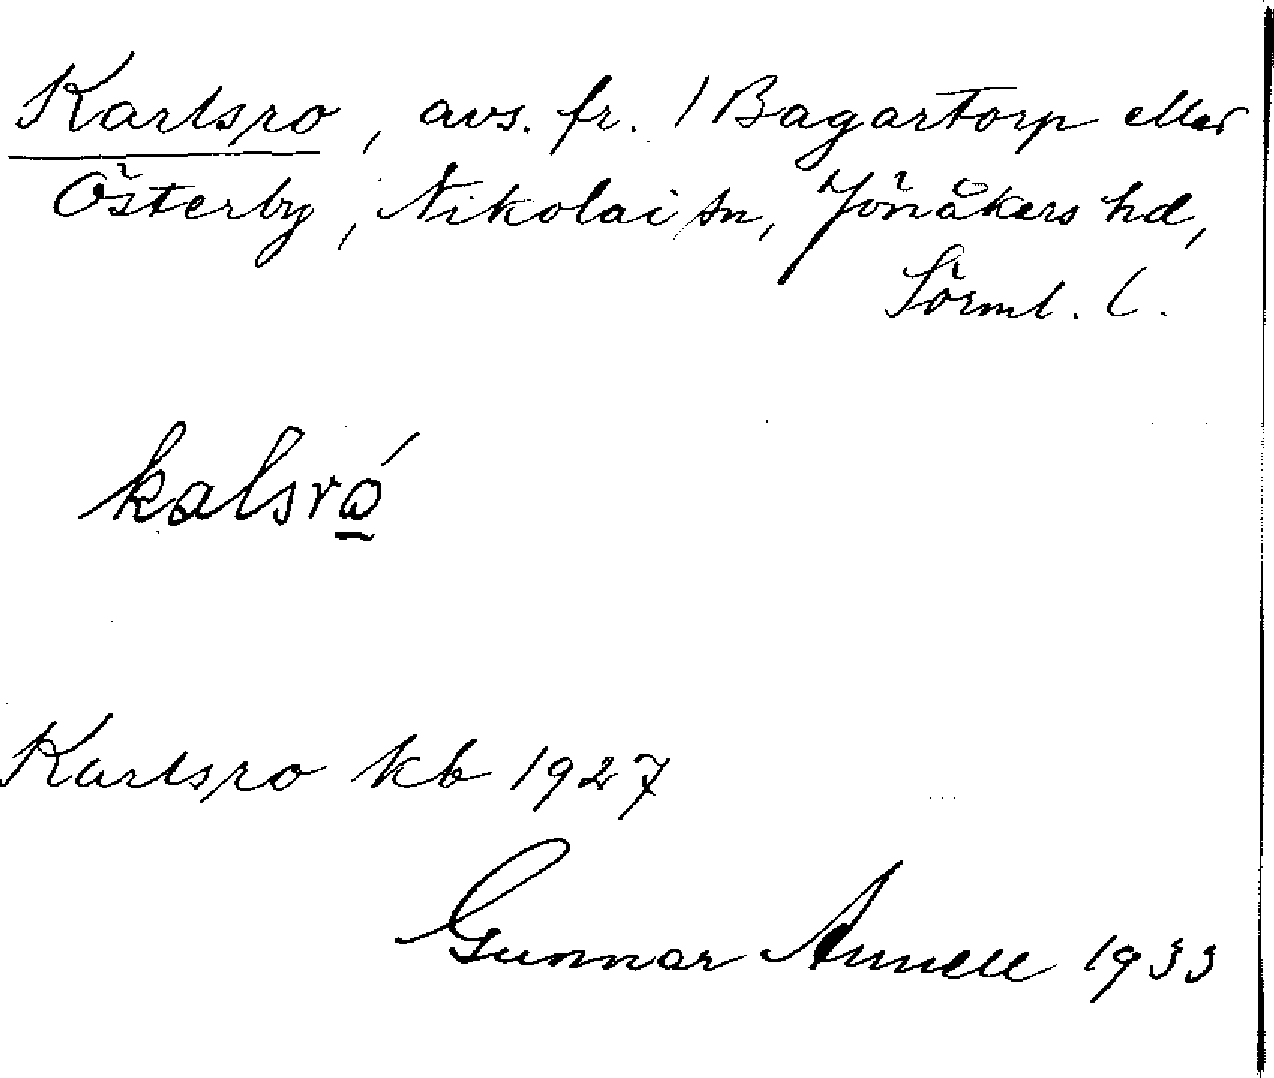 Karlsro, avs. fr. 1 Bagartorp eller
Österby, Nikolai sn, Jönåkers hd,
Sörml. l.
kalsró
Karlsro kb 1927
Gunnar Annell 1933